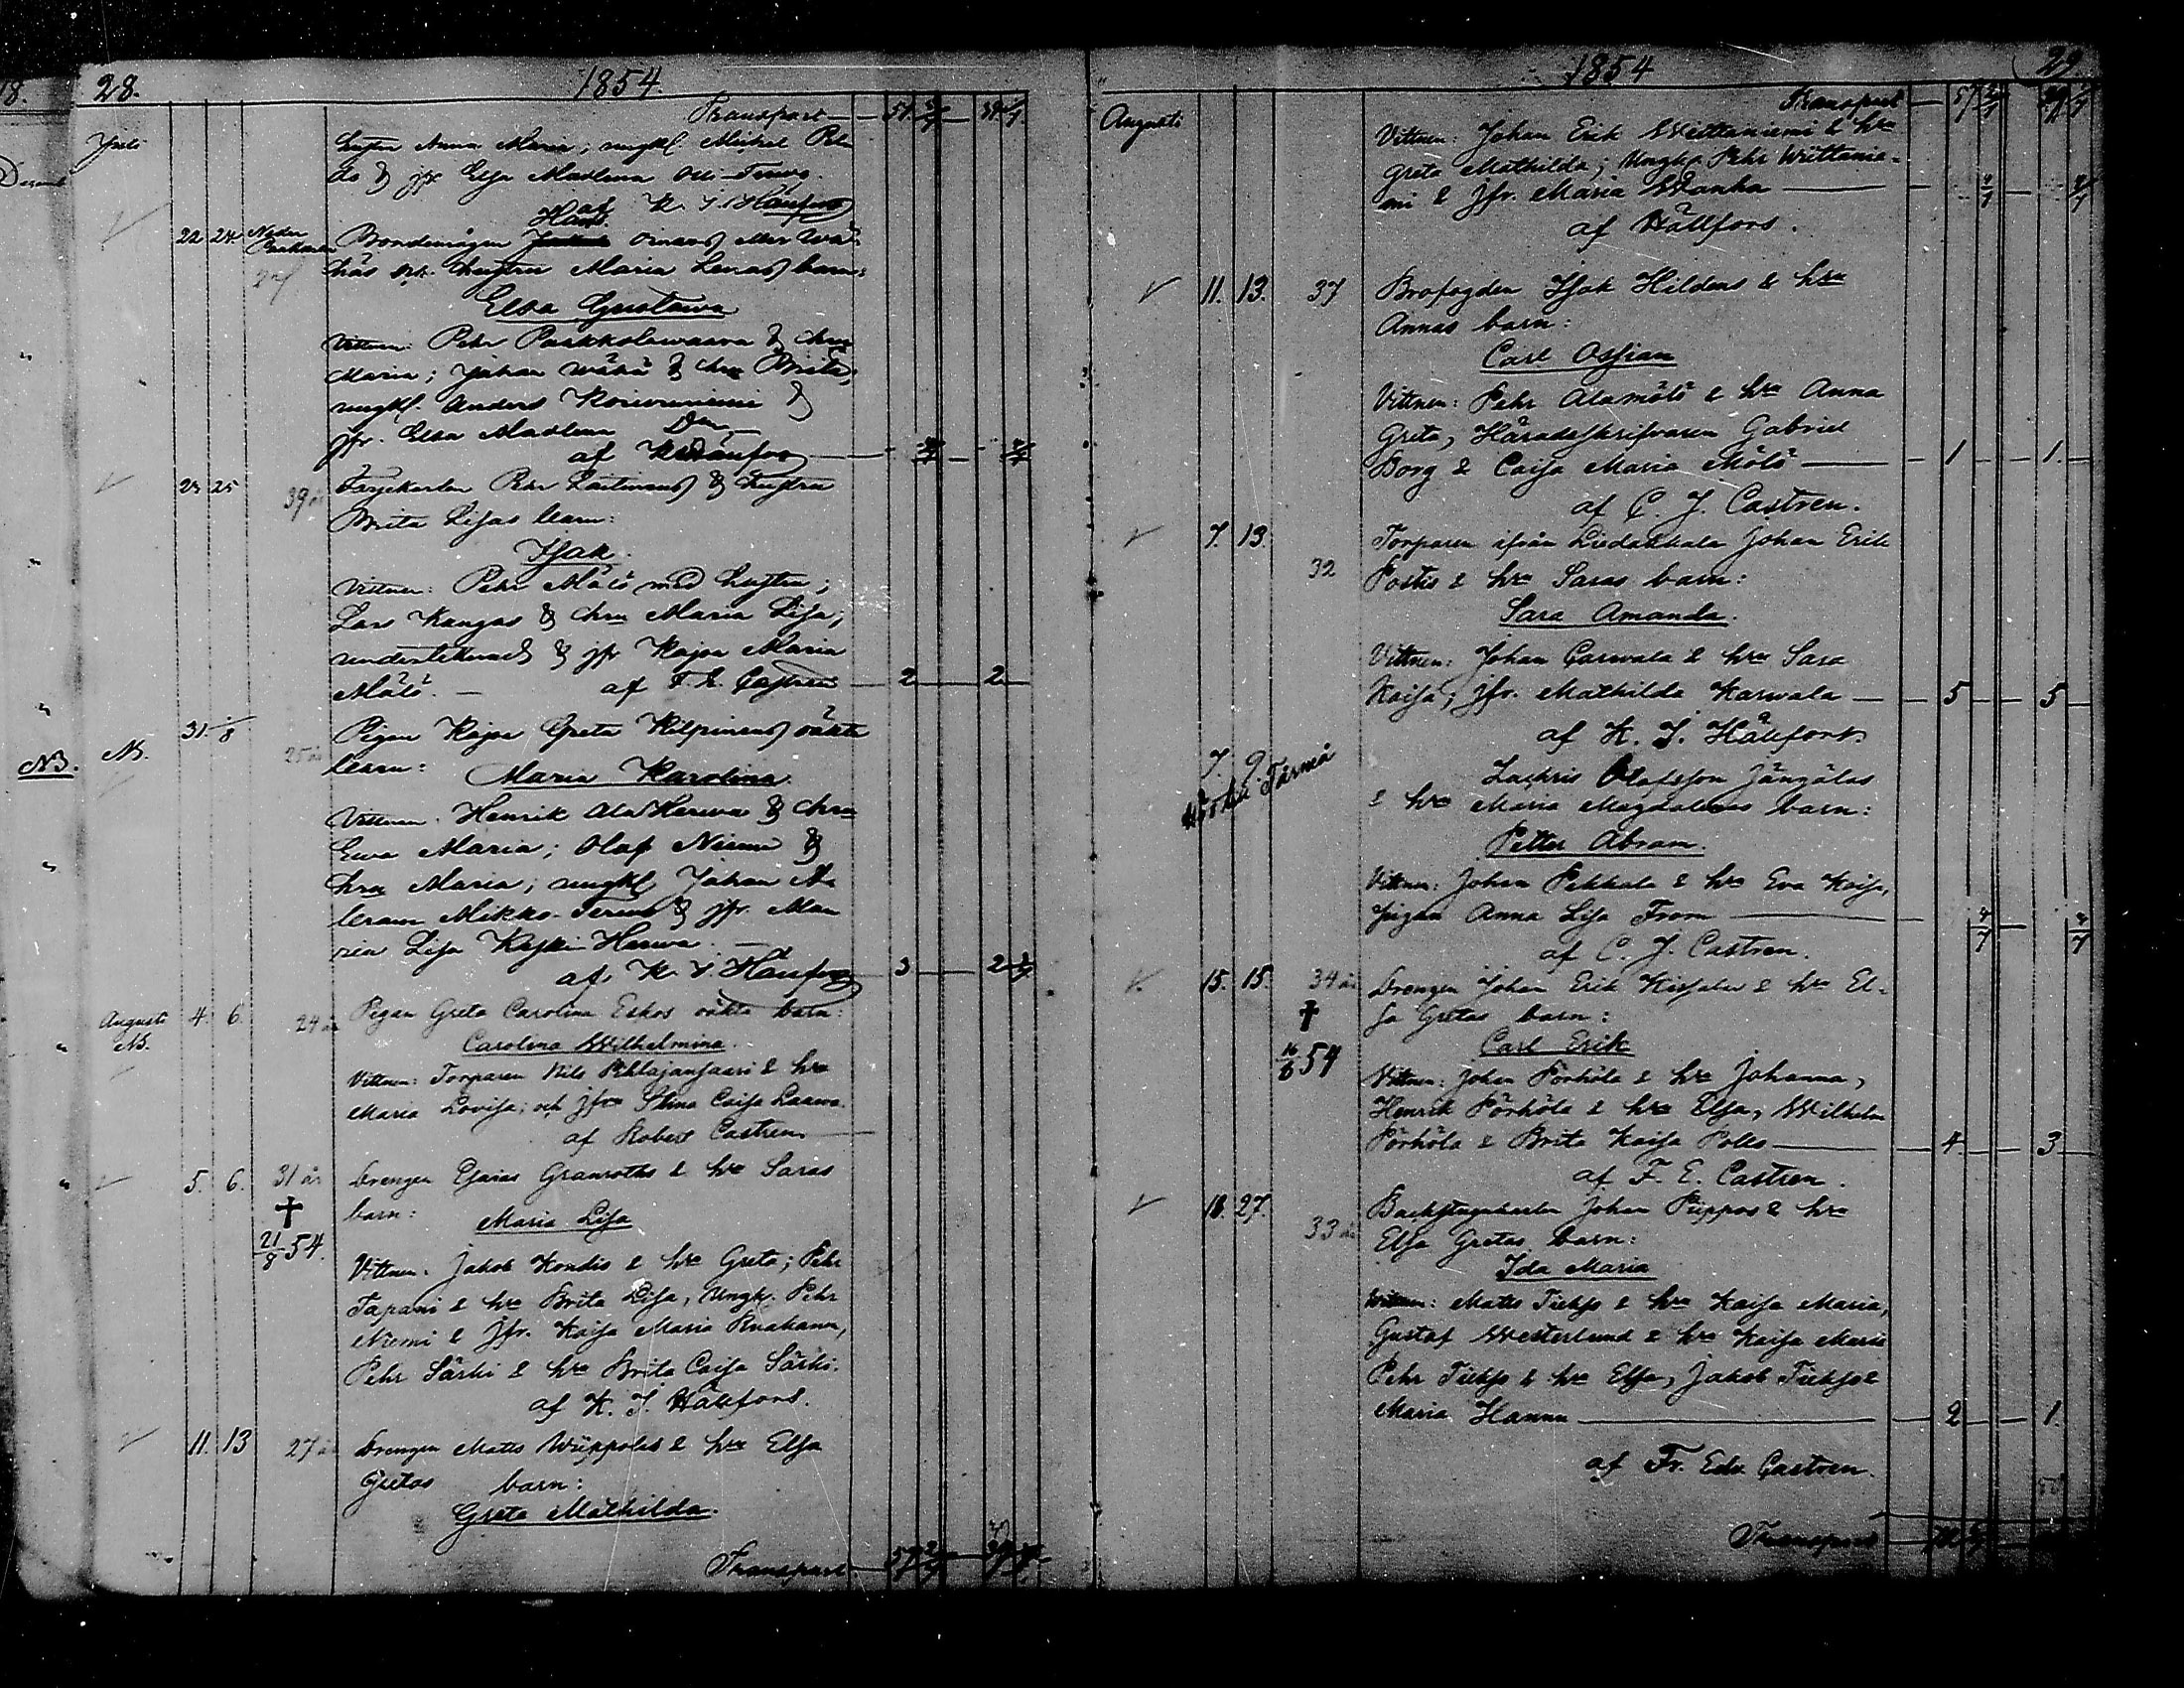 28. 1854.
Transport
Juli
hustru Anna Maria; ungkl. Michel
& jfr Elsa Madlena Oli-Tervo.
af K. J. Hänfors
Hans
22 24 Neder
Bondemågen Oinas eller Wä-
häs och hustru Maria Lenas barn:
Elsa Gustava
Vittnen: Pehr Paakkolanvaara & hru
Maria; Johan Wähä & hru Brita,
ungkl. Anders Koivuniemi &
jfr. Elsa Madlena
af
24 25 39 år
Pehr Laitinens & hustru
Brita Lisas barn:
Isak.
Vittnen: Pehr Mölö med hustru;
Lars Kangas & hru Maria Lisa;
undertecknad & jfr Kajsa Maria
Mölö. af F. E. Castren 2 2
31 1/8 NB. 25 år
Pigan Kajsa Greta Kilpinens oäkta
barn: Maria Karolina
Vittnen. Henrik Ala Herva & hru
Eva Maria; Olaf Niemi &
hru Maria; ungkl Johan A-
bram Mikko-Tervo & jfr. Ma-
ria Lisa Keski-Herva.
af K. J. Hänfors 3 2
Augusti 4. 6. 24 år
NB.
Pigan Greta Carolina Eskos oäkta barn:
Carolina Wilhelmina.
Vittnen: Torparen Nils Pihlajansaari & hru
Maria Lovisa; och jfru Stina Caisa Laava.
af Robert Castren.
5. 6. 31 år
Drengen Esaias Granroths & hru Saras
barn: Maria Lisa
21/8 54.
Vittnen. Jakob Kondis & hru Greta; Pehr
Tapani & hru Brita Lisa, Ungk. Pehr
Niemi & Jfr. Kaisa Maria Ruahanen,
Pehr Särki & hru Brita Caisa Särki.
af K. J. Hällfors.
11. 13 27 år
Drengen Matts Wiippolas & hru Elsa
Gretas barn:
Greta Mathilda.
Transport
1854 29
Transport
Augusti
Vittnen: Johan Erik Wiittaniemi & hru
Greta Mathilda; Ungk. Pehr Wiittanie-
mi & Jfr. Maria Wanha
af Hällfors.
11. 13. 37
Brofogden Isak Hildens & hru
Annas barn:
Carl Ossian
Vittnen: Pehr Alamölö & hru Anna
Greta, Häradsskrifvaren Gabriel
Borg & Caisa Maria Mölö 1 1.
af C. J. Castren.
7. 13. 32
Torparen ifrån Liedakkala Johan Erik
Postis & hru Saras barn:
Sara Amanda.
Vittnen: Johan Garvala & hru Sara
Kaisa; jfr. Mathilda Karvala 5 5
af K. J. Hällfors.
7. 9.
Zachris Olofsson Jängäläs
& hru Maria Magdalenas barn:
Petter Abram.
Vittnen: Johan Pekkala & hru Eva Kaisa,
pigan Anna Lisa From
af C. J. Castren.
15. 15. 34 år
Drengen Johan Erik & hru El-
sa Gretas barn:
Carl Erik
Vittnen: Johan Pörhölä & hru Johanna,
Henrik Pörhölä & hru Elsa, Wilhelm
Pörhölä & Brita Kaisa Pollo 4. 3
af F. E. Castren.
18. 27. 33 år
Backstugukarlen Johan Piippos & hru
Elsa Gretas barn:
Ida Maria
Vittnen: Matts Tiekso & hru Kaisa Maria,
Gustaf Westerlund & hru Kaisa Maria
Pehr Tiekso & hru Elsa, Jakob Tiekso &
Maria Hannu 2 1.
af Fr. Edv. Castren.
Transport